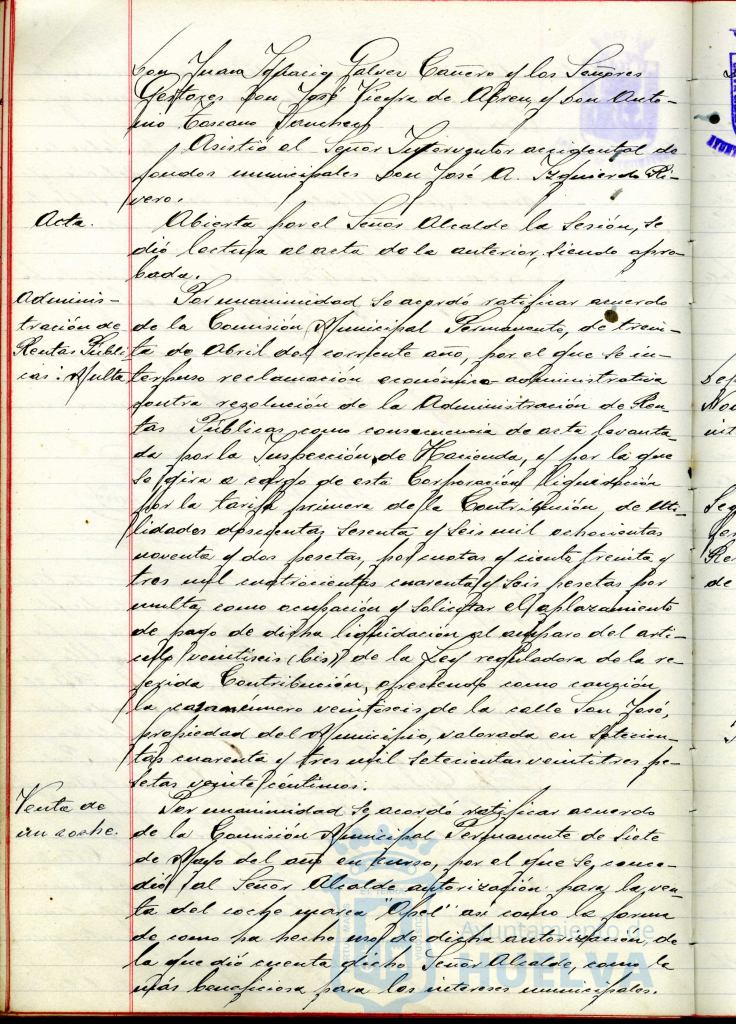 Don Juan Ignacio Galvez Cañero y los Señores
Gestores Don José Vieyra de Abreu y Don Anto-
nio Toscano Sanchez
Asistió el Señor Interventor accidental de
fondos municipales Don José A. Izquierdo Ri-
vero.
Acta.
Abierta por el Señor Alcalde la Sesión, se
dió lectura al acta de la anterior, siendo apro-
bada.
Adminis-
tración de
Rentas Públi-
cas: Multa
Por unanimidad se acordó ratificar acuerdo
de la Comisión Municipal Permanente, de trein-
ta de Abril del corriente año, por el que se in-
terpuso reclamación económico-administrativa
contra resolución de la Administración de Ren-
tas Públicas como consecuencia de acta levanta-
da por la Inspección de Hacienda, y por la que
se gira a cargo de esta Corporación liquidación
por la tarifa primera de la Contribución, de Uti-
lidades doscientas sesenta y seis mil ochocientas
noventa y dos pesetas, por cuotas y ciento treinta y
tres mil cuatrocientas cuarenta y seis pesetas por
multa, como ocupación y solicitar el aplazamiento
de pago de dicha liquidación al amparo del artí-
culo veintiseis (bis) de la Ley reguladora de la re-
ferida Contribución, ofreciendo como caución
la casa número veintiseis de la calle San José,
propiedad del Municipio, valorada en setecien-
tas cuarenta y tres mil setecientas veintitres pe-
setas veinte céntimos.
Venta de
un coche.
Por unanimidad se acordó ratificar acuerdo
de la Comisión Municipal Permanente de siete
de Mayo del año en curso, por el que se conce-
dió al Señor Alcalde autorización para la ven-
ta del coche marca "Opel" así como la forma
de como ha hecho uso de dicha autorización, de
la que dió cuenta dicho Señor Alcalde, como la
más beneficiosa para los intereses municipales.
Ayuntamiento de
HUELVA